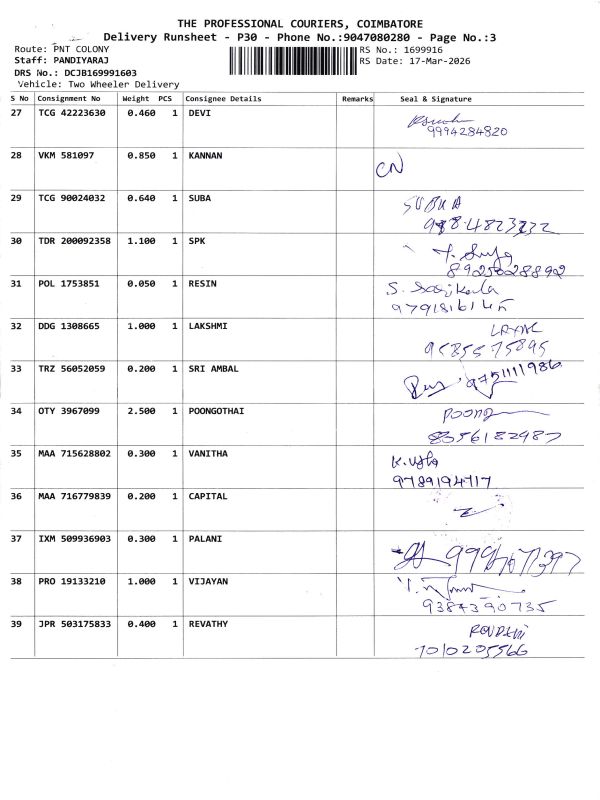 THE PROFESSIONAL COURIERS, COIMBATORE
Delivery Runsheet - P30 - Phone No.:9047080280 - Page No.:3
Route: PNT COLONY RS No.: 1699916
Staff: PANDIYARAJ RS Date: 17-Mar-2026
DRS No.: DCJB169991603
Vehicle: Two Wheeler Delivery
S No Consignment No Weight PCS Consignee Details Remarks Seal & Signature
27 TCG 42223630 0.460 1 DEVI
9994284820
28 VKM 581097 0.850 1 KANNAN
CN
29 TCG 90024032 0.640 1 SUBA SUBHA
30 TDR 200092358 1.100 1 SPK
8925028892
31 POL 1753851 0.050 1 RESIN S. Sasikala
32 DDG 1308665 1.000 1 LAKSHMI
9585575895
33 TRZ 56052059 0.200 1 SRI AMBAL 9751111986
34 OTY 3967099 2.500 1 POONGOTHAI
8356182987
35 MAA 715628802 0.300 1 VANITHA K. Usha
9789194717
36 MAA 716779839 0.200 1 CAPITAL
37 IXM 509936903 0.300 1 PALANI
38 PRO 19133210 1.000 1 VIJAYAN
9384390735
39 JPR 503175833 0.400 1 REVATHY
7010205566